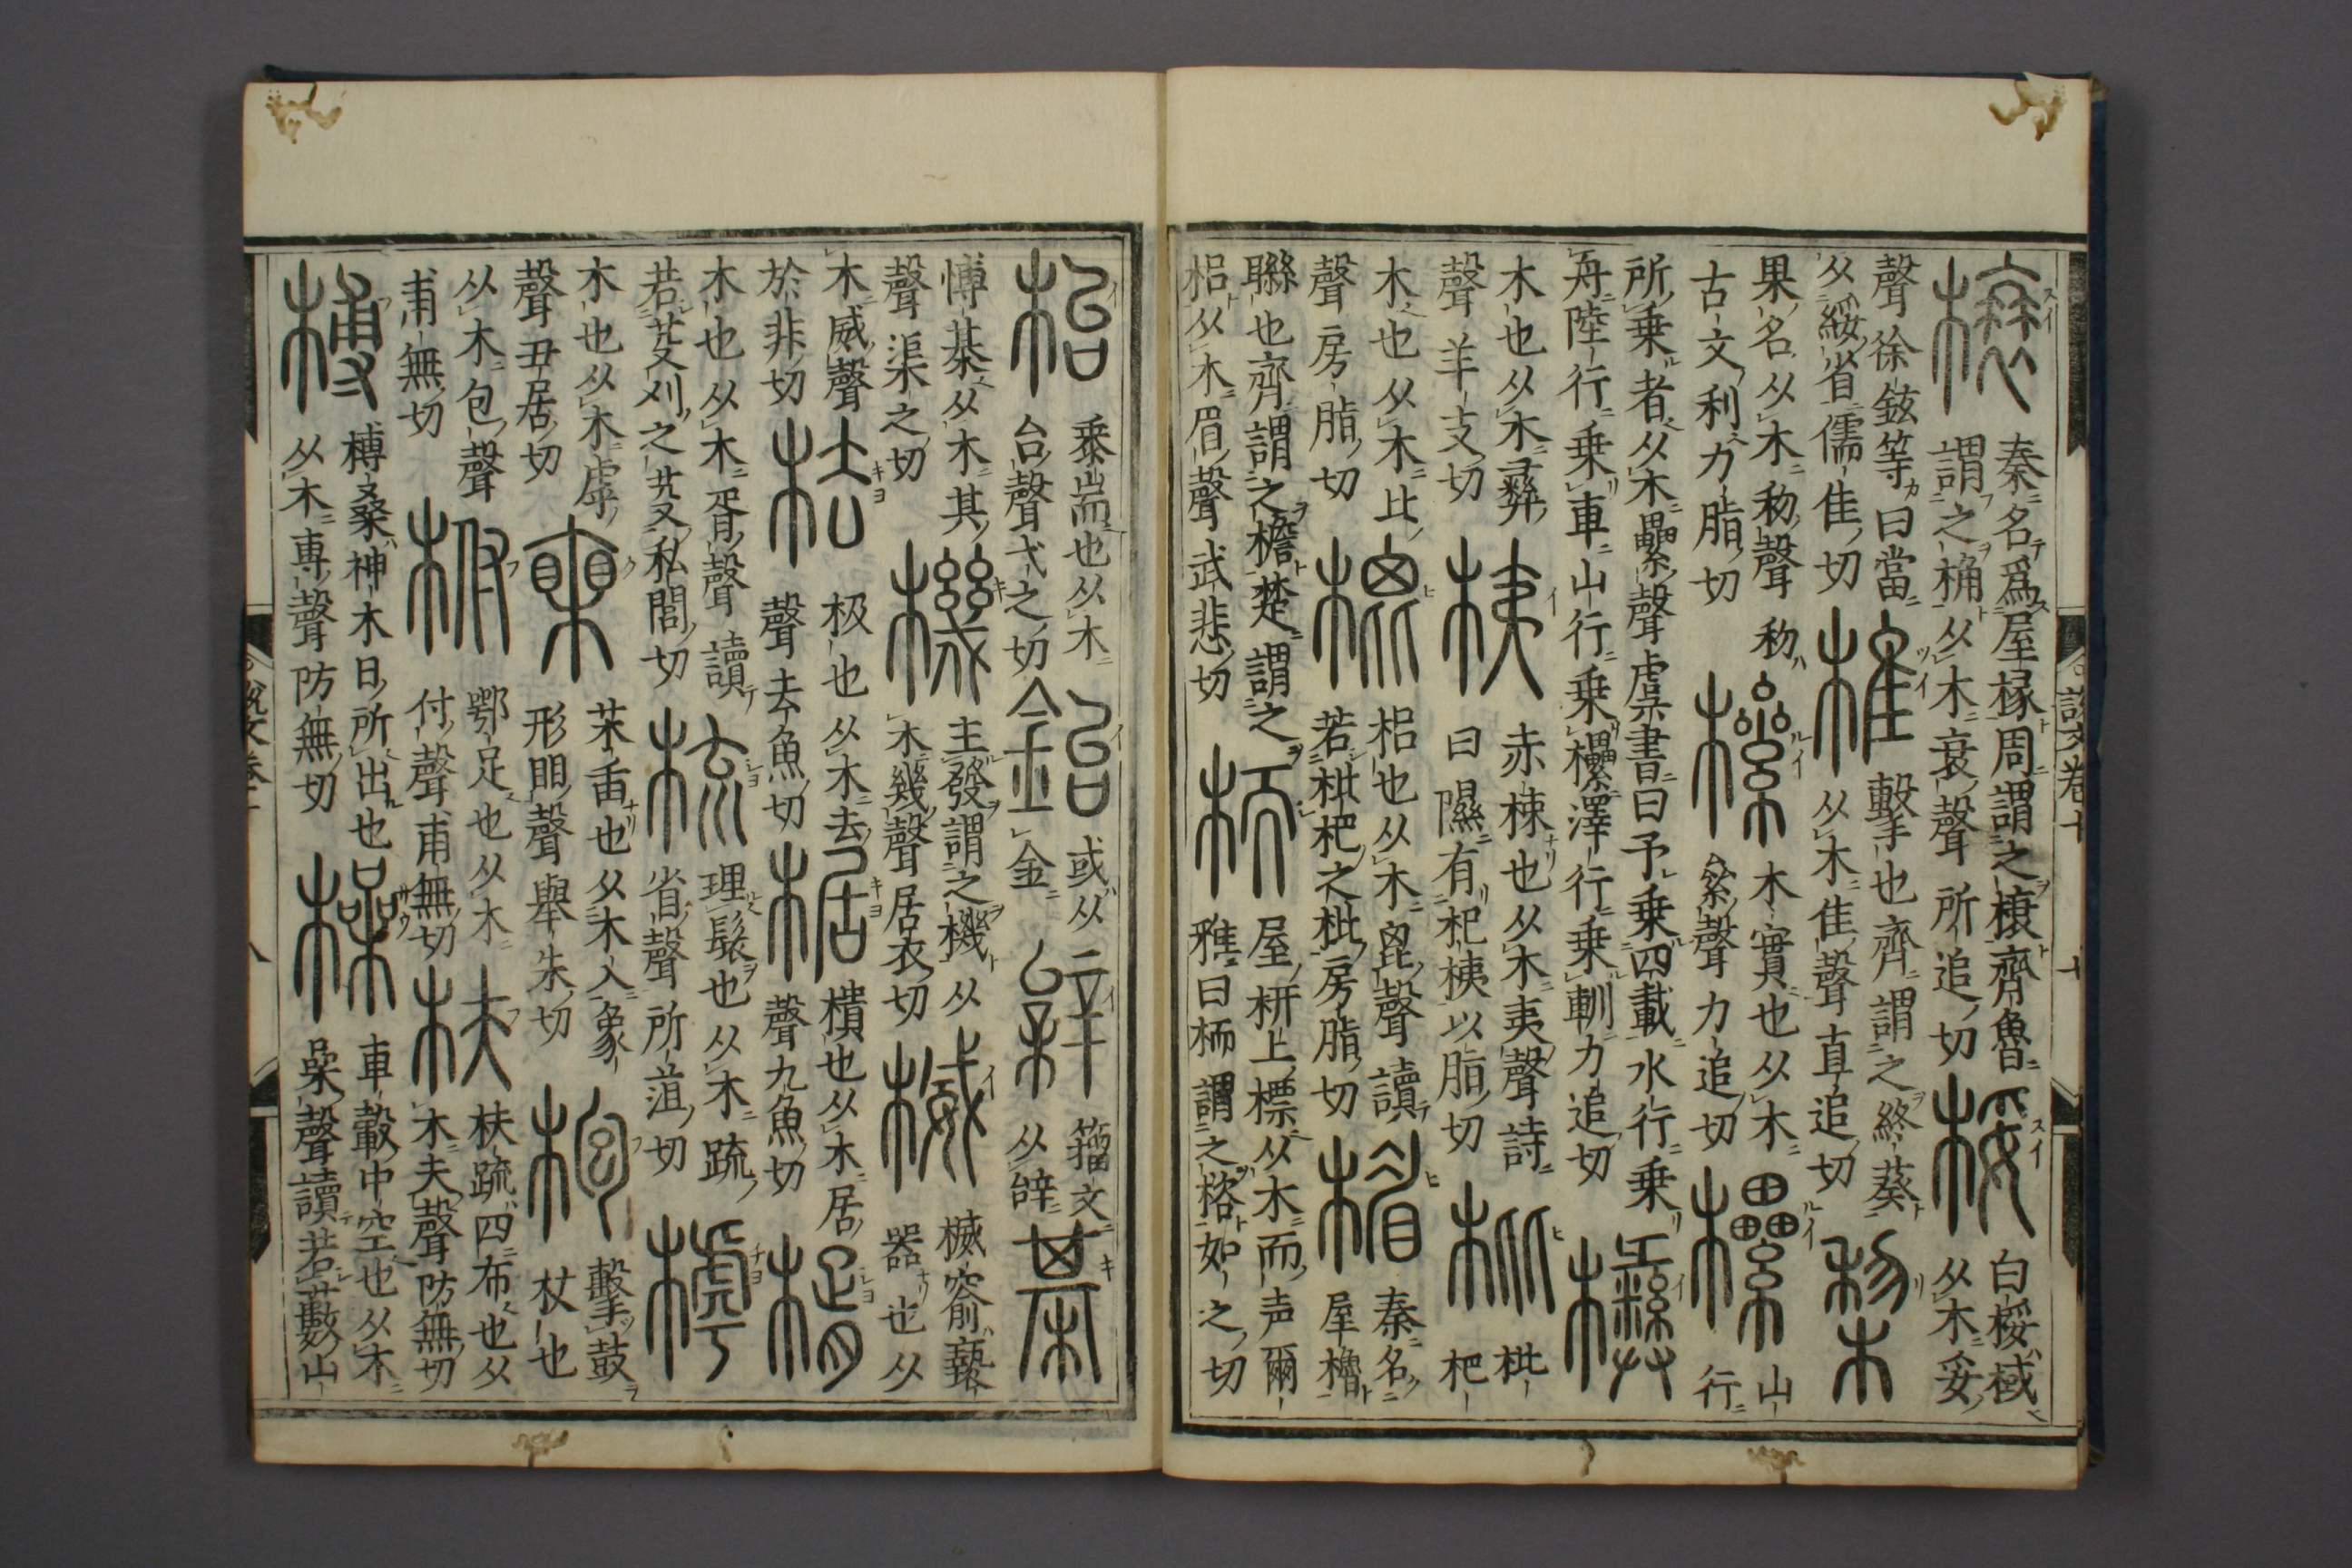 榱
秦名爲屋椽周謂之榱齊魯
謂之桷从木衰聲所追切
桵
白桵棫
从木妥
聲徐鉉等曰當
从綏省儒隹切
椎
擊也齊謂之終葵
从木隹聲直追切
棃
果名从木𥝢聲𥝢
古文利力脂切
樏
木實也从木
絫聲力追切
欙
山
行
所乗者从木纍聲虞書曰予乗四載水行乗
舟陸行乗車山行乗欙澤行乗輴力追切
木也从木彝
聲羊支切
桋
赤楝也从木夷聲詩
曰隰有杞桋以脂切
枇
枇
杷
木也从木比
聲房脂切
㮰
梠也从木𣬉聲讀
若枇杷之枇房脂切
楣
秦名
屋櫋
聯也齊謂之檐楚謂之
梠从木眉聲武悲切
栭
屋枅上標从木而声爾
雅曰栭謂之楶如之切
說文卷十
枱
耒耑也从木
台聲弋之切
鈶
或从
金
籀文
从辝
棊
博棊从木其
聲渠之切
機
主發謂之機从
木幾聲居衣切
楲
楲窬褻
器也从
木威聲
於非切
㭕
极也从木去
聲去魚切
椐
樻也从木居
聲九魚切
楈
木也从木胥聲讀
若芟刈之芟私閭切
梳
理髮也从木疏
省聲所菹切
樗
木也从木虖
聲丑居切
茉臿也从木入象
形䀠聲舉朱切
枹
擊鼓
杖也
从木包聲
甫無切
柎
鄂足也从木
付聲甫無切
枎
枎疏四布也从
木夫聲防無切
榑
榑桑神木日所出也
从木尃聲防無切
橾
車轂中空也从木
喿聲讀若藪山